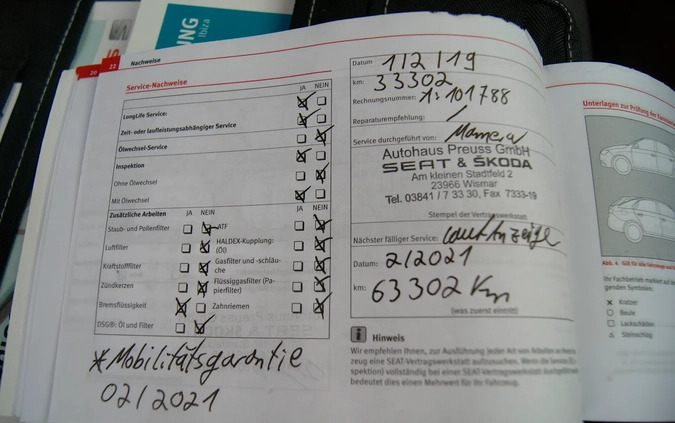 NG
Ibiza
20
22
Nachweise
Service-Nachweise
JA NEIN
LongLife Service:
Zeit- oder laufleistungsabhängiger Service
Ölwechsel-Service
Inspektion
Ohne Ölwechsel
Mit Ölwechsel
Zusätzliche Arbeiten JA NEIN JA NEIN
Staub- und Pollenfilter ATF
Luftfilter HALDEX-Kupplung: (Öl)
Kraftstofffilter Gasfilter und -schläuche
Zündkerzen Flüssiggasfilter (Papierfilter)
Bremsflüssigkeit Zahnriemen
DSG®: Öl und Filter
*Mobilitätsgarantie
02/2021
Datum 1/2/19
km: 33302
Rechnungsnummer: 1:101788
Reparaturempfehlung: /
Service durchgeführt von:
Autohaus Preuss GmbH
SEAT & ŠKODA
Am kleinen Stadtfeld 2
23966 Wismar
Tel. 03841 / 7 33 30, Fax 7333-19
Stempel der Vertragswerkstatt
Nächster fälliger Service: laut Anzeige
Datum: 2/2021
km: 63302 Km
(was zuerst eintritt)
i Hinweis
Wir empfehlen Ihnen, zur Ausführung jeder Art von Arbeiten an Ihrem
zeug eine SEAT-Vertragswerkstatt aufzusuchen. Wenn die Service
spektion) vollständig bei einer SEAT-Vertragswerkstatt durchgeführt
bedeutet dies einen Mehrwert für Ihr Fahrzeug.
Unterlagen zur Prüfung der
Abb. 4 Gilt für alle Fahrzeuge
Ihr Fachbetrieb markiert auf
genden Symbolen:
× Kratzer
○ Beule
□ Lackschäden
△ Steinschlag